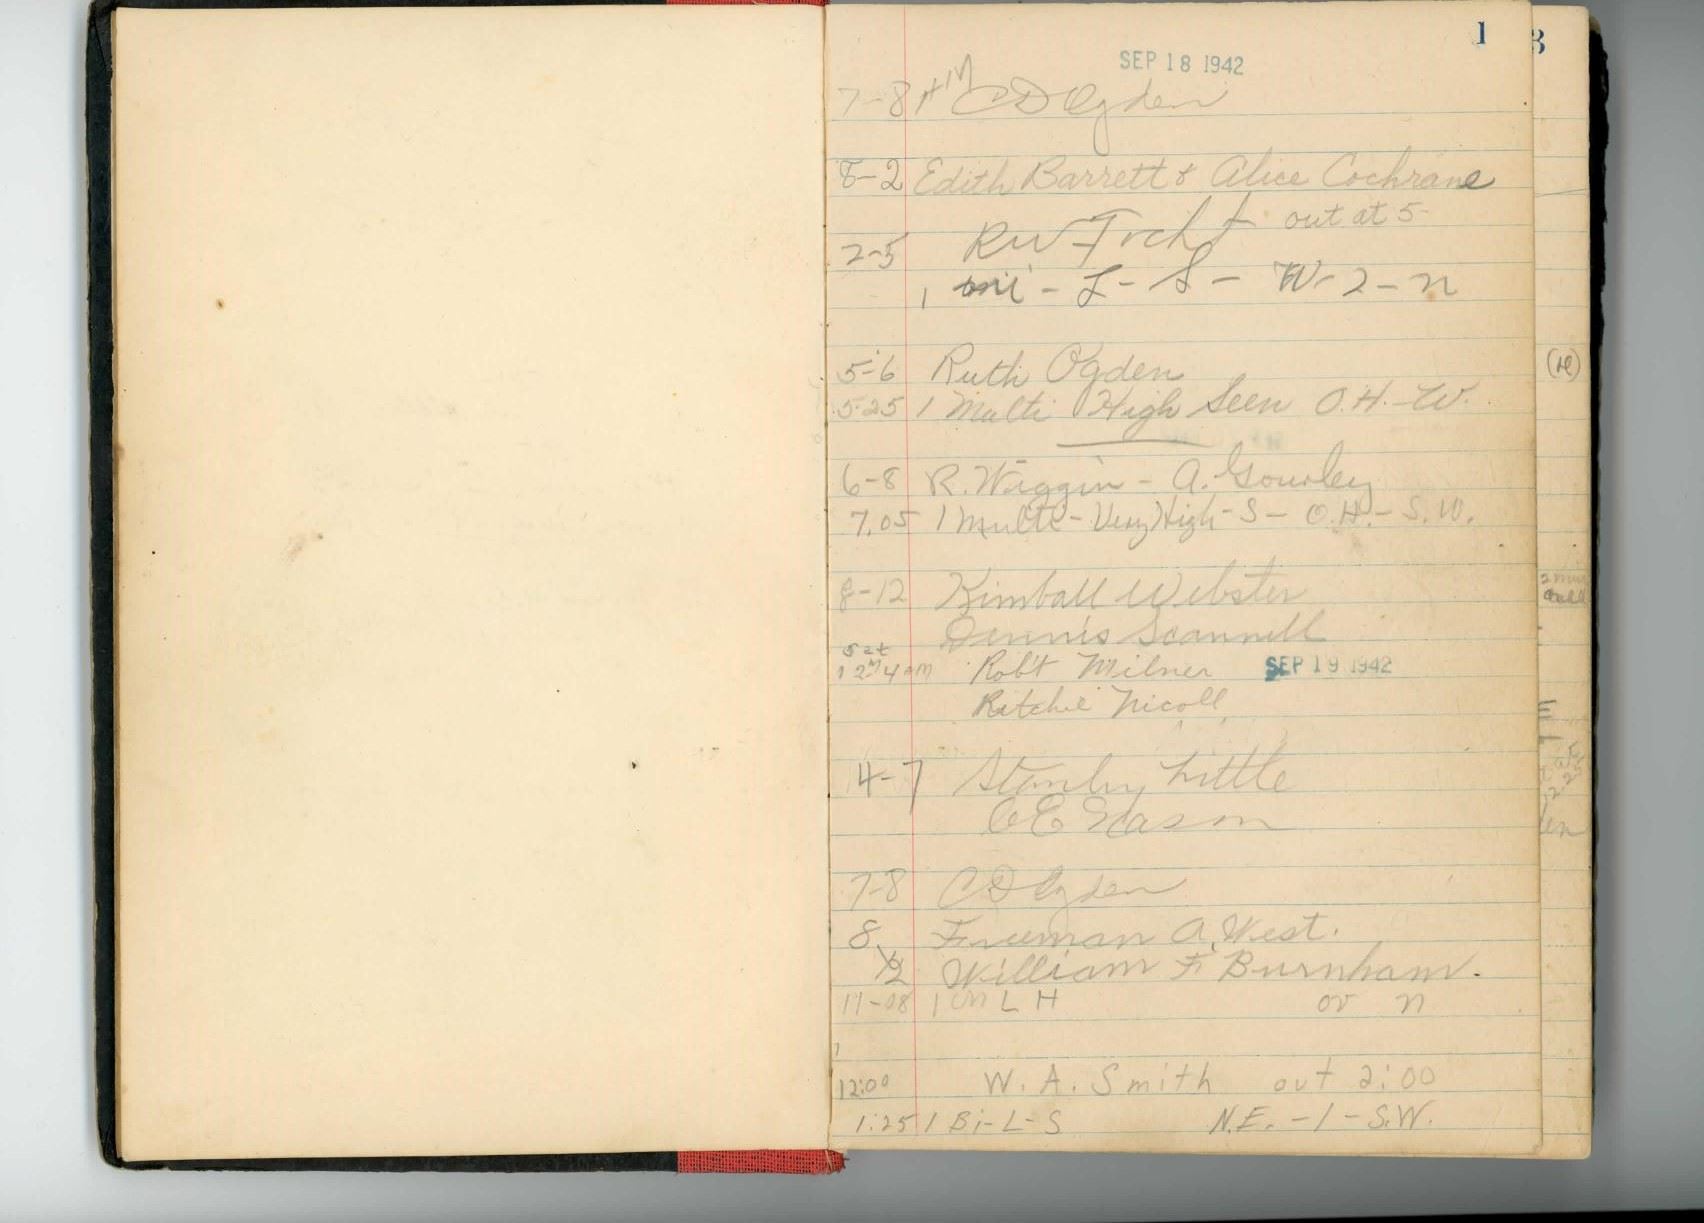 1
SEP 18 1942
7-8 AM CD Ogden
8-2 Edith Barrett & Alice Cochrane
2-5 out at 5-
1 - L - S - W - 2 - n
5-6 Ruth Ogden
5:25 1 Multi High Seen O.H.-W.
6-8 R. Wiggin - A. Gourley
7.05 1 Multi - Very High - S - O.H. - S.W.
8-12 Kimball Webster
Dennis Scannell
Sat
12-4 AM Rob't Milner SEP 19 1942
Ritchie Nicoll
4-7 Stanley Little
CE Eason
7-8 CD Ogden
8 Freeman A. West.
12 William F. Burnham.
11-08 1 M L H ov n
12:00 W. A. Smith out 2:00
1:25 1 Bi-L-S N.E. -1- S.W.
3
(H)